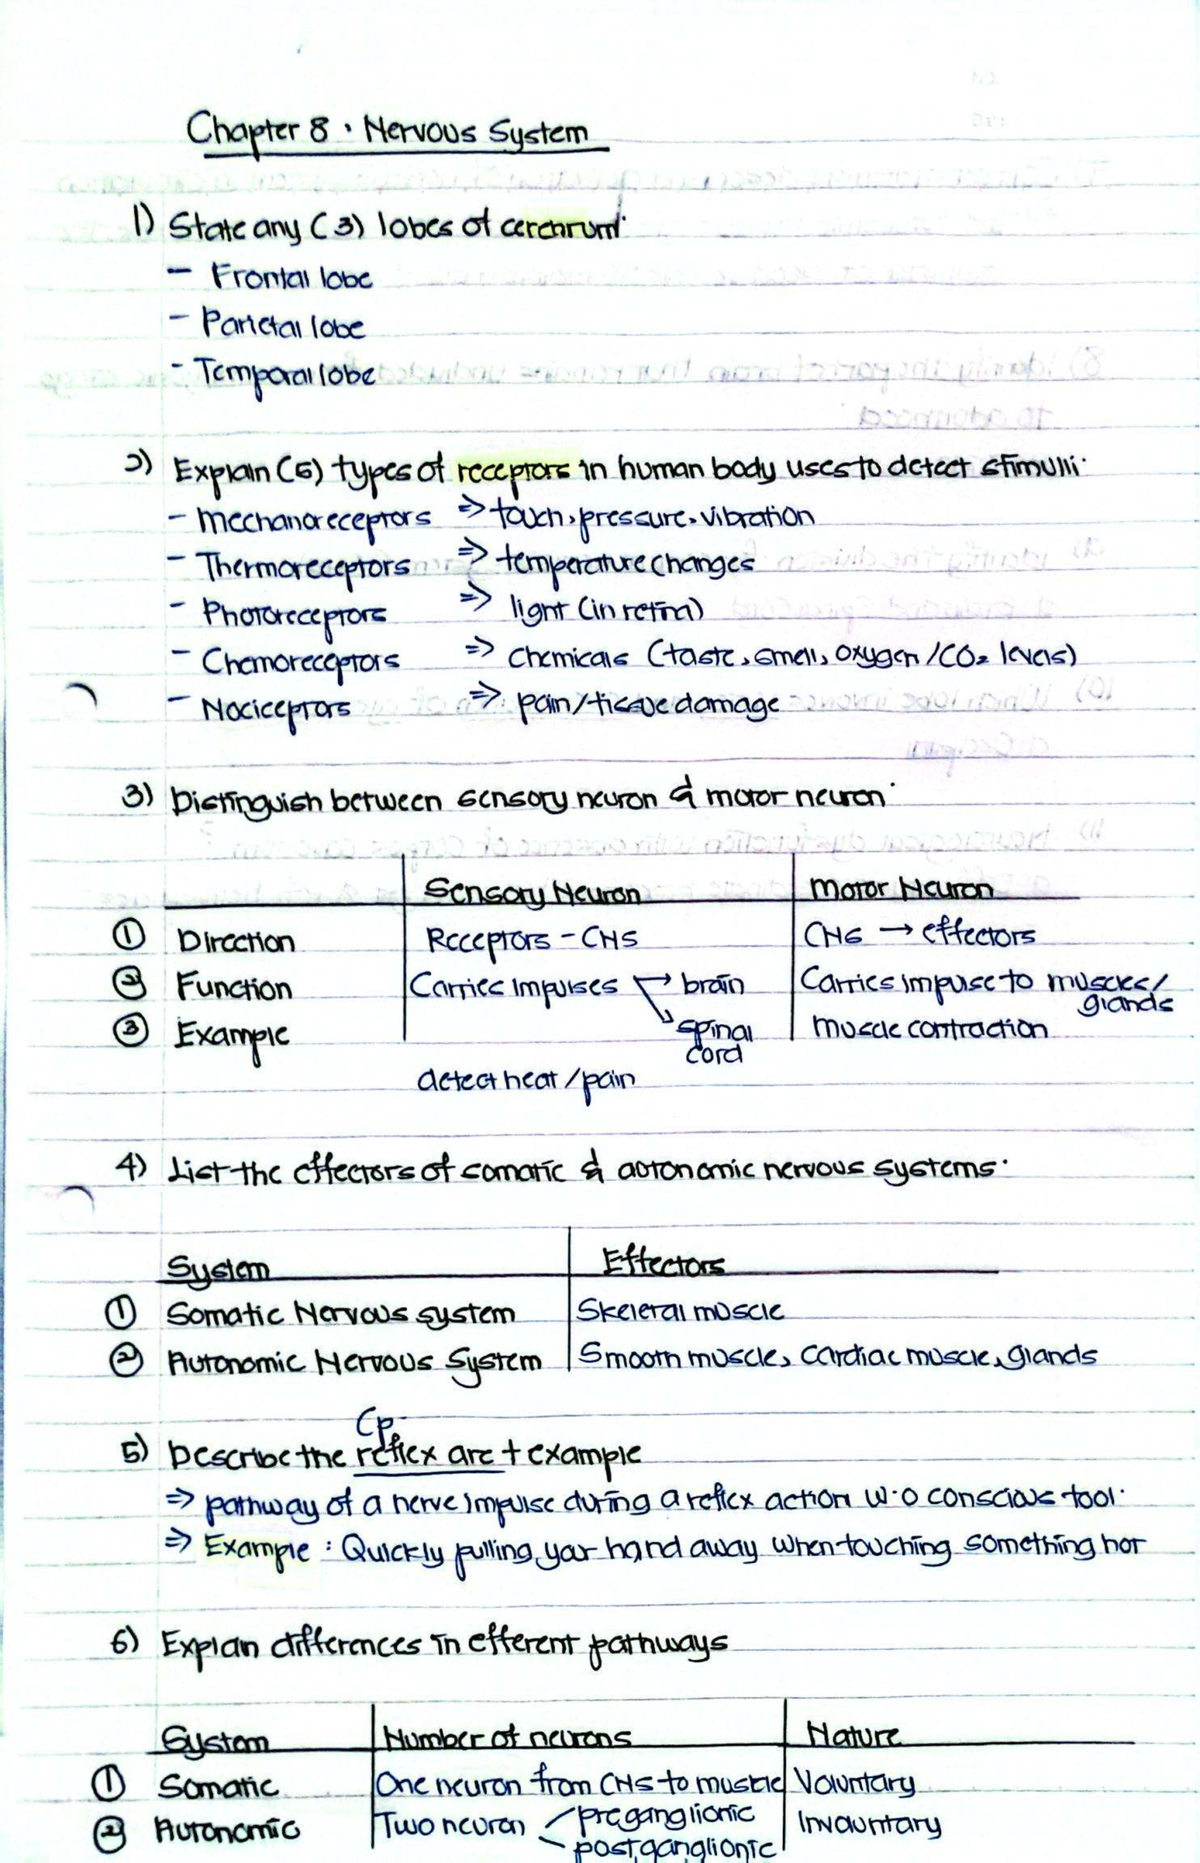 Chapter 8 · Nervous System
1) State any (3) lobes of cerebrum·
- Frontal lobe
- Parietal lobe
- Temporal lobe
2) Explain (5) types of receptors in human body uses to detect stimuli·
- Mechanoreceptors => touch, pressure, vibration
- Thermoreceptors => temperature changes
- Photoreceptors => light (in retina)
- Chemoreceptors => chemicals (taste, smell, oxygen/CO₂ levels)
- Nociceptors => pain/tissue damage
3) Distinguish between sensory neuron & motor neuron·
Sensory Neuron Motor Neuron
① Direction Receptors - CNS CNS → effectors
② Function Carries impulses brain Carries impulse to muscles/
glands
③ Example spinal muscle contraction
cord
detect heat/pain
4) List the effectors of somatic & autonomic nervous systems·
System Effectors
① Somatic Nervous system Skeletal muscle
② Autonomic Nervous System Smooth muscle, cardiac muscle, glands
Cp
5) Describe the reflex arc + example
=> pathway of a nerve impulse during a reflex action w·o conscious tool·
=> Example : Quickly pulling your hand away when touching something hot
6) Explan differences in efferent pathways
System Number of neurons Nature
① Somatic One neuron from CNS to muscle Voluntary
② Autonomic Two neuron preganglionic Invountary
postganglionic